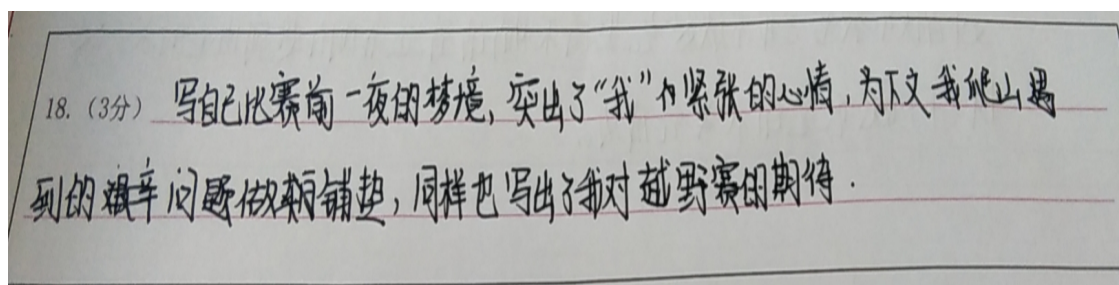 18.(3分) 写自己比赛前一夜的梦境,突出了“我”内紧张的心情,为下文我爬山遇
到的艰辛问题做铺垫,同样也写出了我对越野赛的期待.